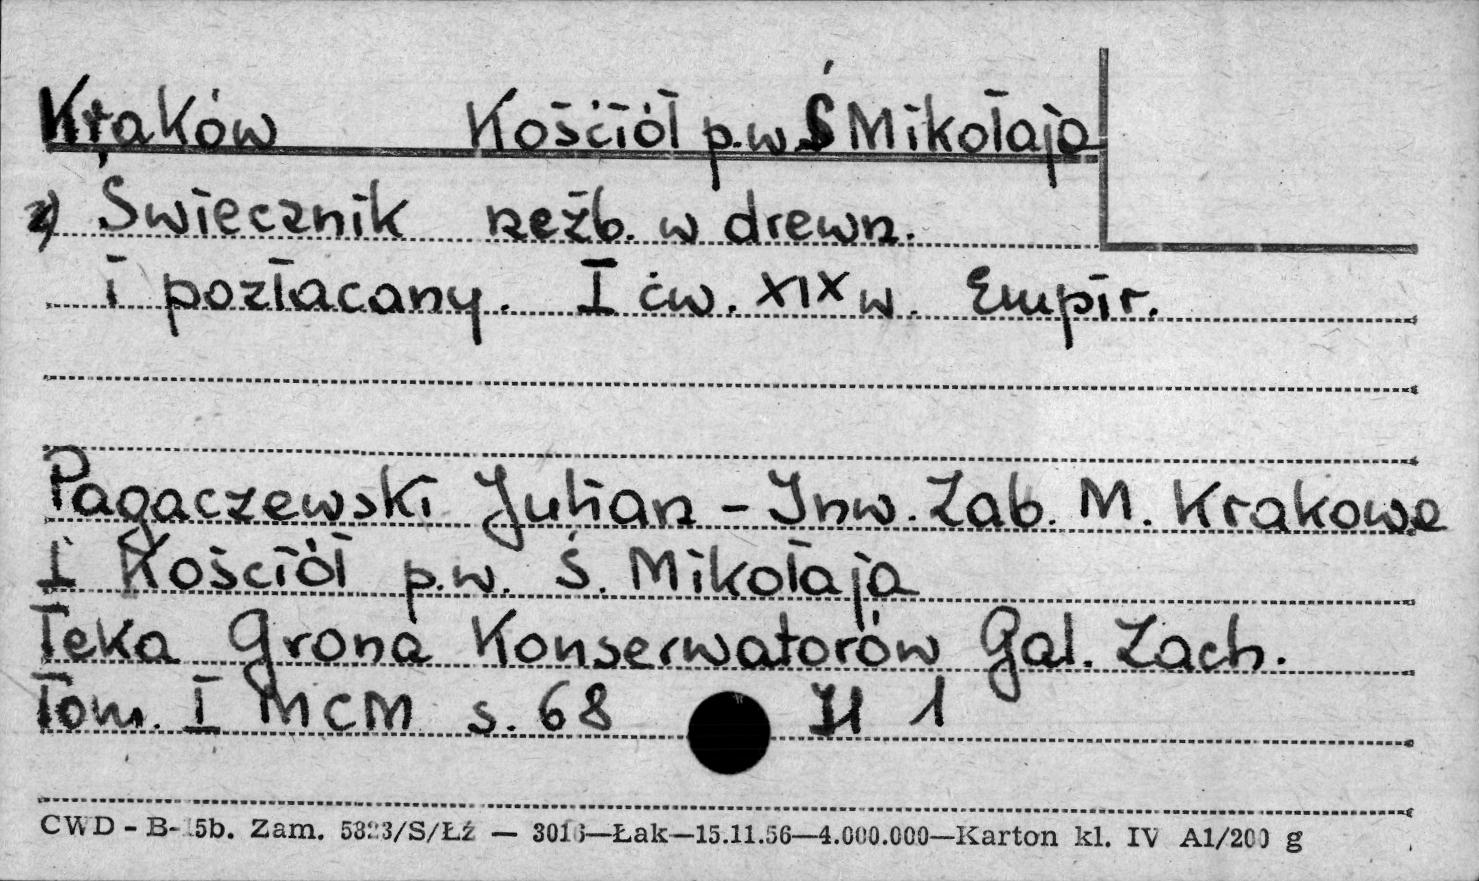 Kraków Kościół p.w Ś Mikołaja
2) Świecznik rzeźb. w drewn.
i pozłacany. I ćw. XIX w. Empir.
Pagaczewski Julian - Inw. Zab. M. Krakowa
I Kościół p.w. Ś. Mikołaja
Teka Grona Konserwatorów Gal. Zach.
Tom. I MCM s. 68 H 1
CWD - B-15b. Zam. 5823/S/Łź — 3016—Łak—15.11.56—4.000.000—Karton kl. IV A1/200 g